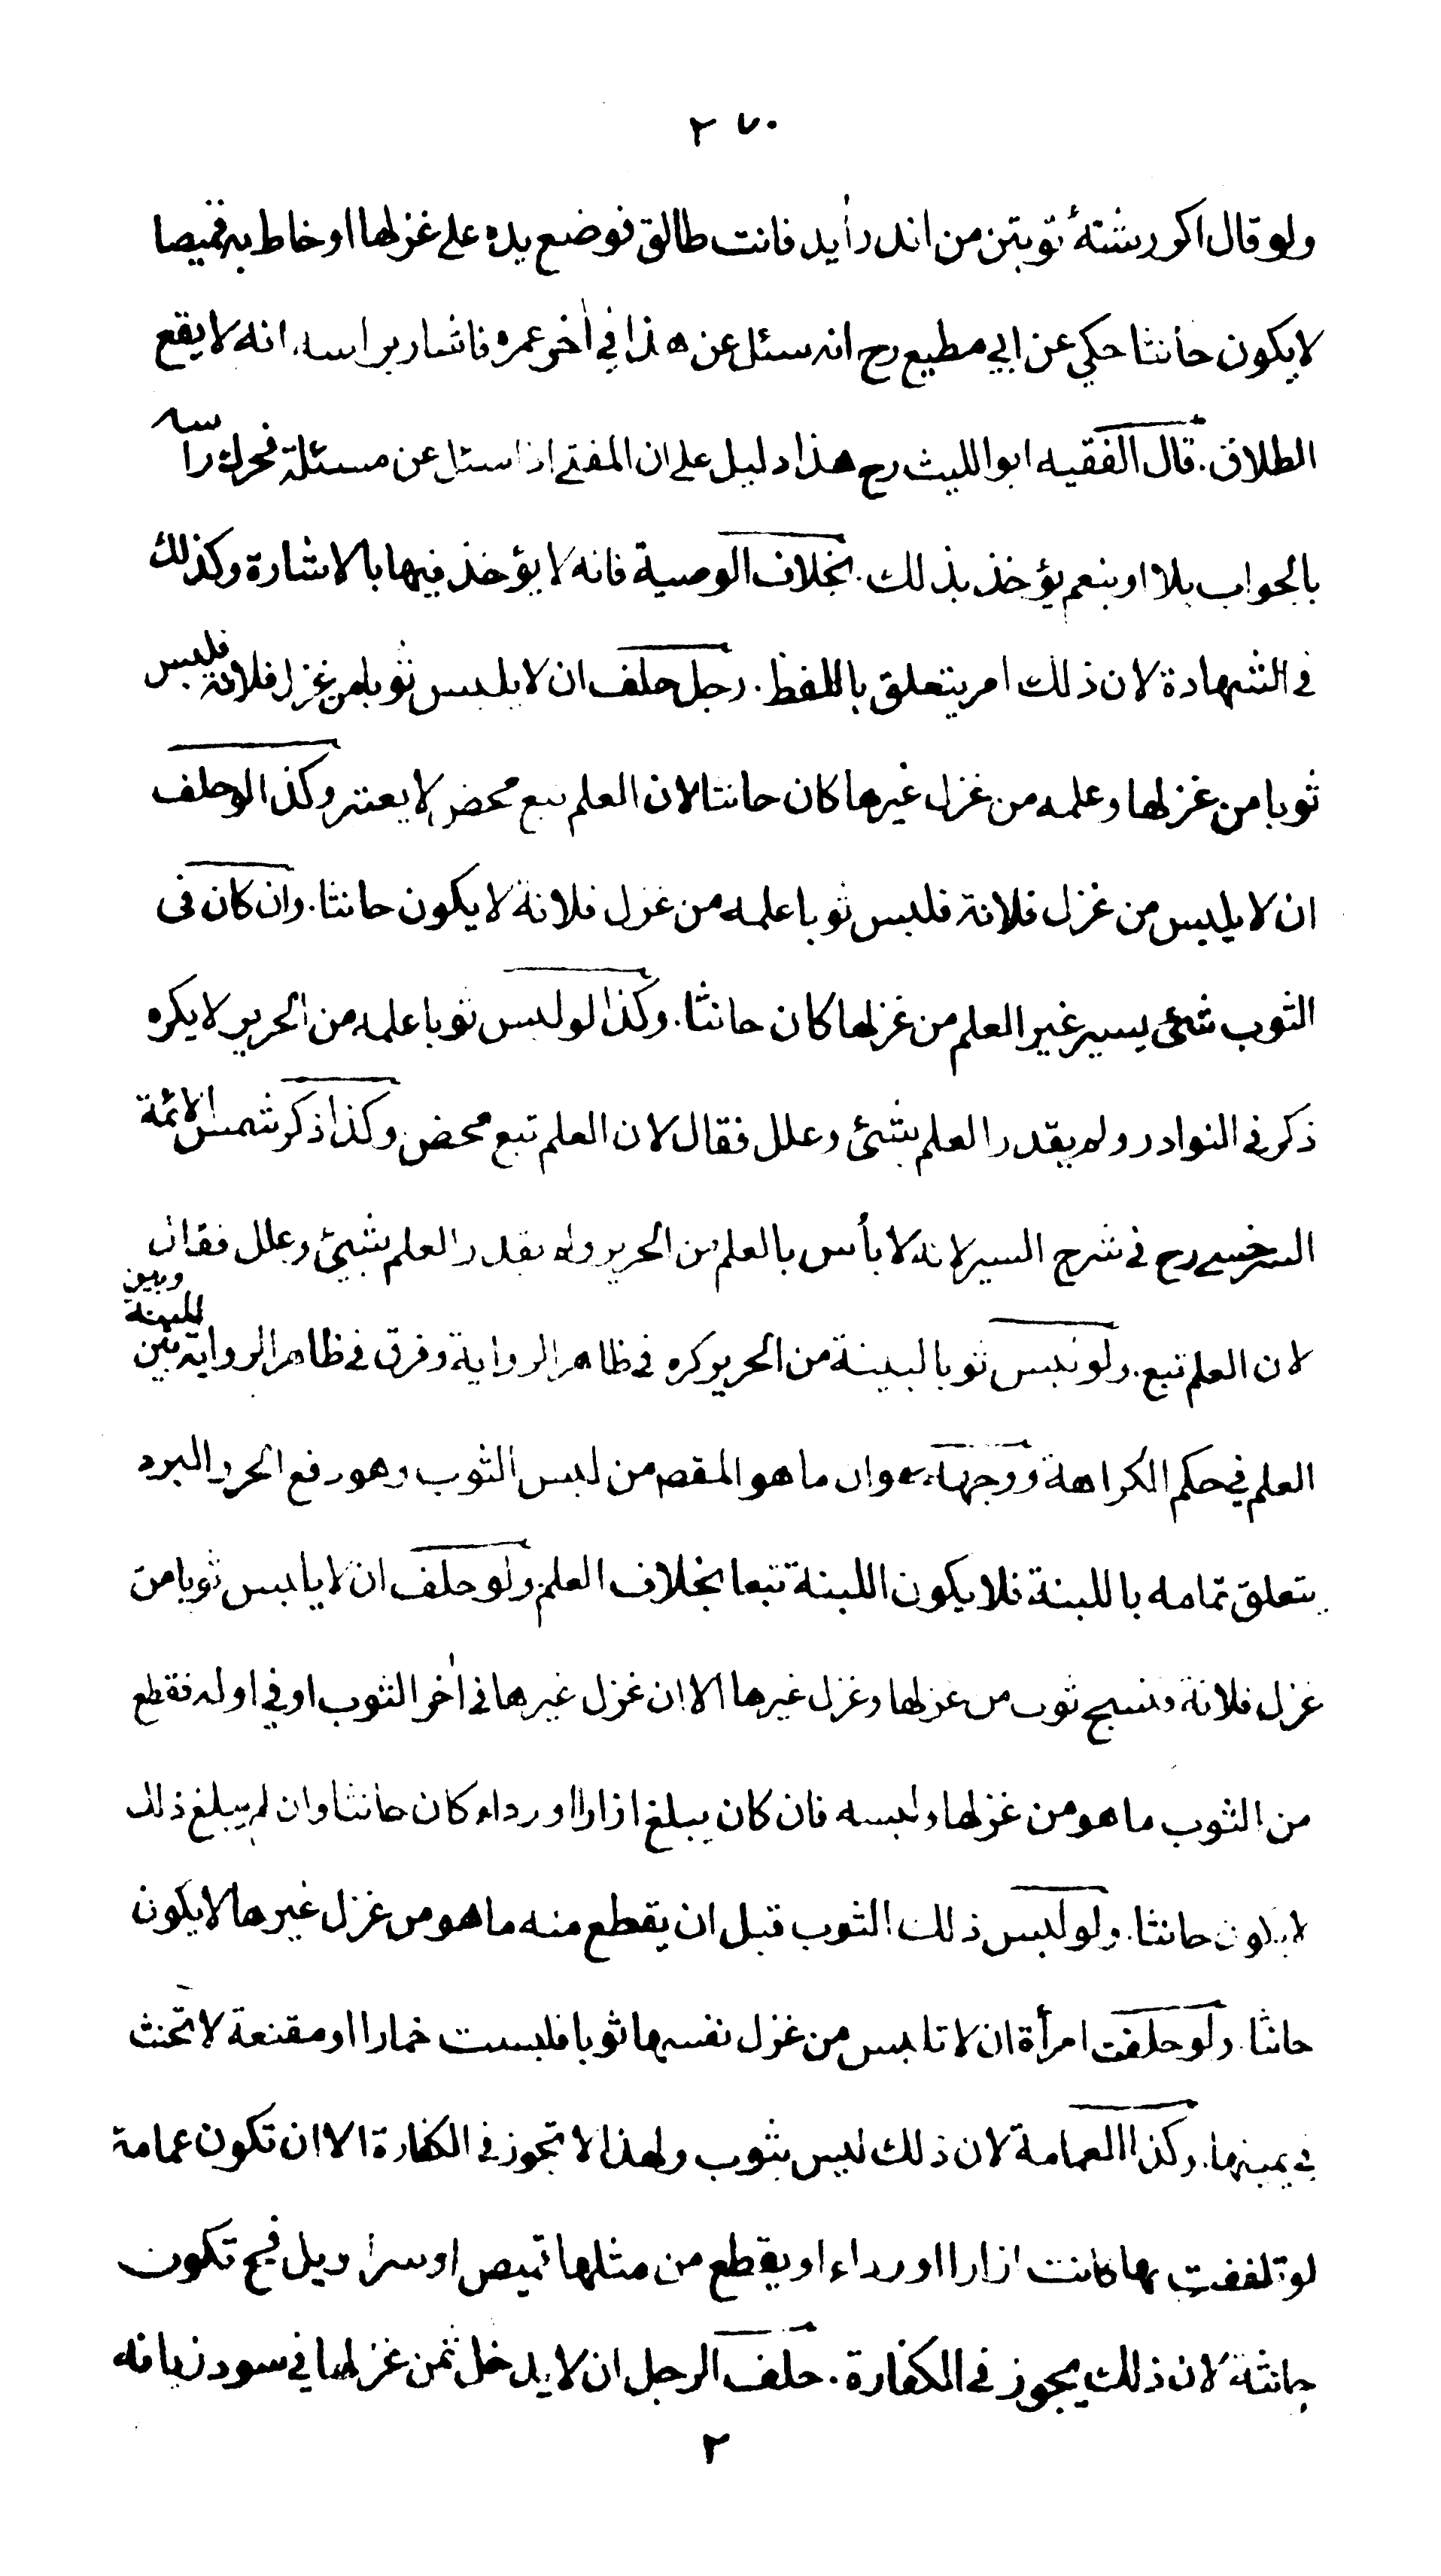 ٢٧٠
ولو قال اكر رشتهٔ تو بتن من اندر أيد فانت طالق فوضع يده على غزلها او خاط به قميصا
لا يكون حانثا حكي عن ابي مطيع رح انه سئل عن هذا في أخر عمره فاشار براسه انه لا يقع
الطلاق. قال الفقيه ابو الليث رح هذا دليل على ان المفتي اذا سئل عن مسئلة فحرك رأسه
بالجواب بلا او بنعم يؤخذ بذلك. بخلاف الوصية فانه لا يؤخذ فيها بالاشارة وكذلك
في الشهادة لان ذلك امر يتعلق باللفظ. رجل حلف ان لا يلبس ثوبا من غزل فلانة فلبس
ثوبا من غزلها وعلمه من غزل غيرها كان حانثا لان العلم تبع محض لا يعتبر وكذا لو حلف
ان لا يلبس من غزل فلانة فلبس ثوبا علمه من غزل فلانة لا يكون حانثا. وان كان فى
الثوب شئ يسير غير العلم من غزلها كان حانثا. وكذا لو لبس ثوبا علمه من الحرير لا يكره
ذكر في النوادر ولم يقدر العلم بشئ وعلل فقال لان العلم تبع محض وكذا ذكر شمس الائمة
السرخسي رح في شرح السير لانه لا بأس بالعلم من الحرير ولم يقدر العلم بشئ وعلل فقال
لان العلم تبع. ولو لبس ثوبا لبنة من الحرير كره في ظاهر الرواية وفرق في ظاهر الرواية بين اللبنة وبين
العلم في حكم الكراهة ووجهه هو ان ما هو المقصم من لبس الثوب وهو دفع الحر والبرد
يتعلق تمامه باللبنة فلا يكون اللبنة تبعا بخلاف العلم ولو حلف ان لا يلبس ثوبا من
غزل فلانة فنسج ثوب من غزلها وغزل غيرها الا ان غزل غيرها في أخر الثوب او في اوله فقطع
من الثوب ما هو من غزلها ولبسه فان كان يبلغ ازارا او رداء كان حانثا وان لم يبلغ ذلك
لا يكون حانثا. ولو لبس ذلك الثوب قبل ان يقطع منه ما هو من غزل غيرها لا يكون
حانثا. ولو حلفت امرأة ان لا تلبس من غزل نفسها ثوبا فلبست خمارا او مقنعة لا تحنث
في يمينها. وكذا العمامة لان ذلك ليس بثوب ولهذا لا تجوز في الكفارة الا ان تكون عمامة
لو تلففت بها كانت ازارا او رداء او يقطع من مثلها قميص او سراويل فيح تكون
حانثة لان ذلك يجوز في الكفارة. حلف الرجل ان لا يدخل ثمن غزلها في سود زيانه
٢